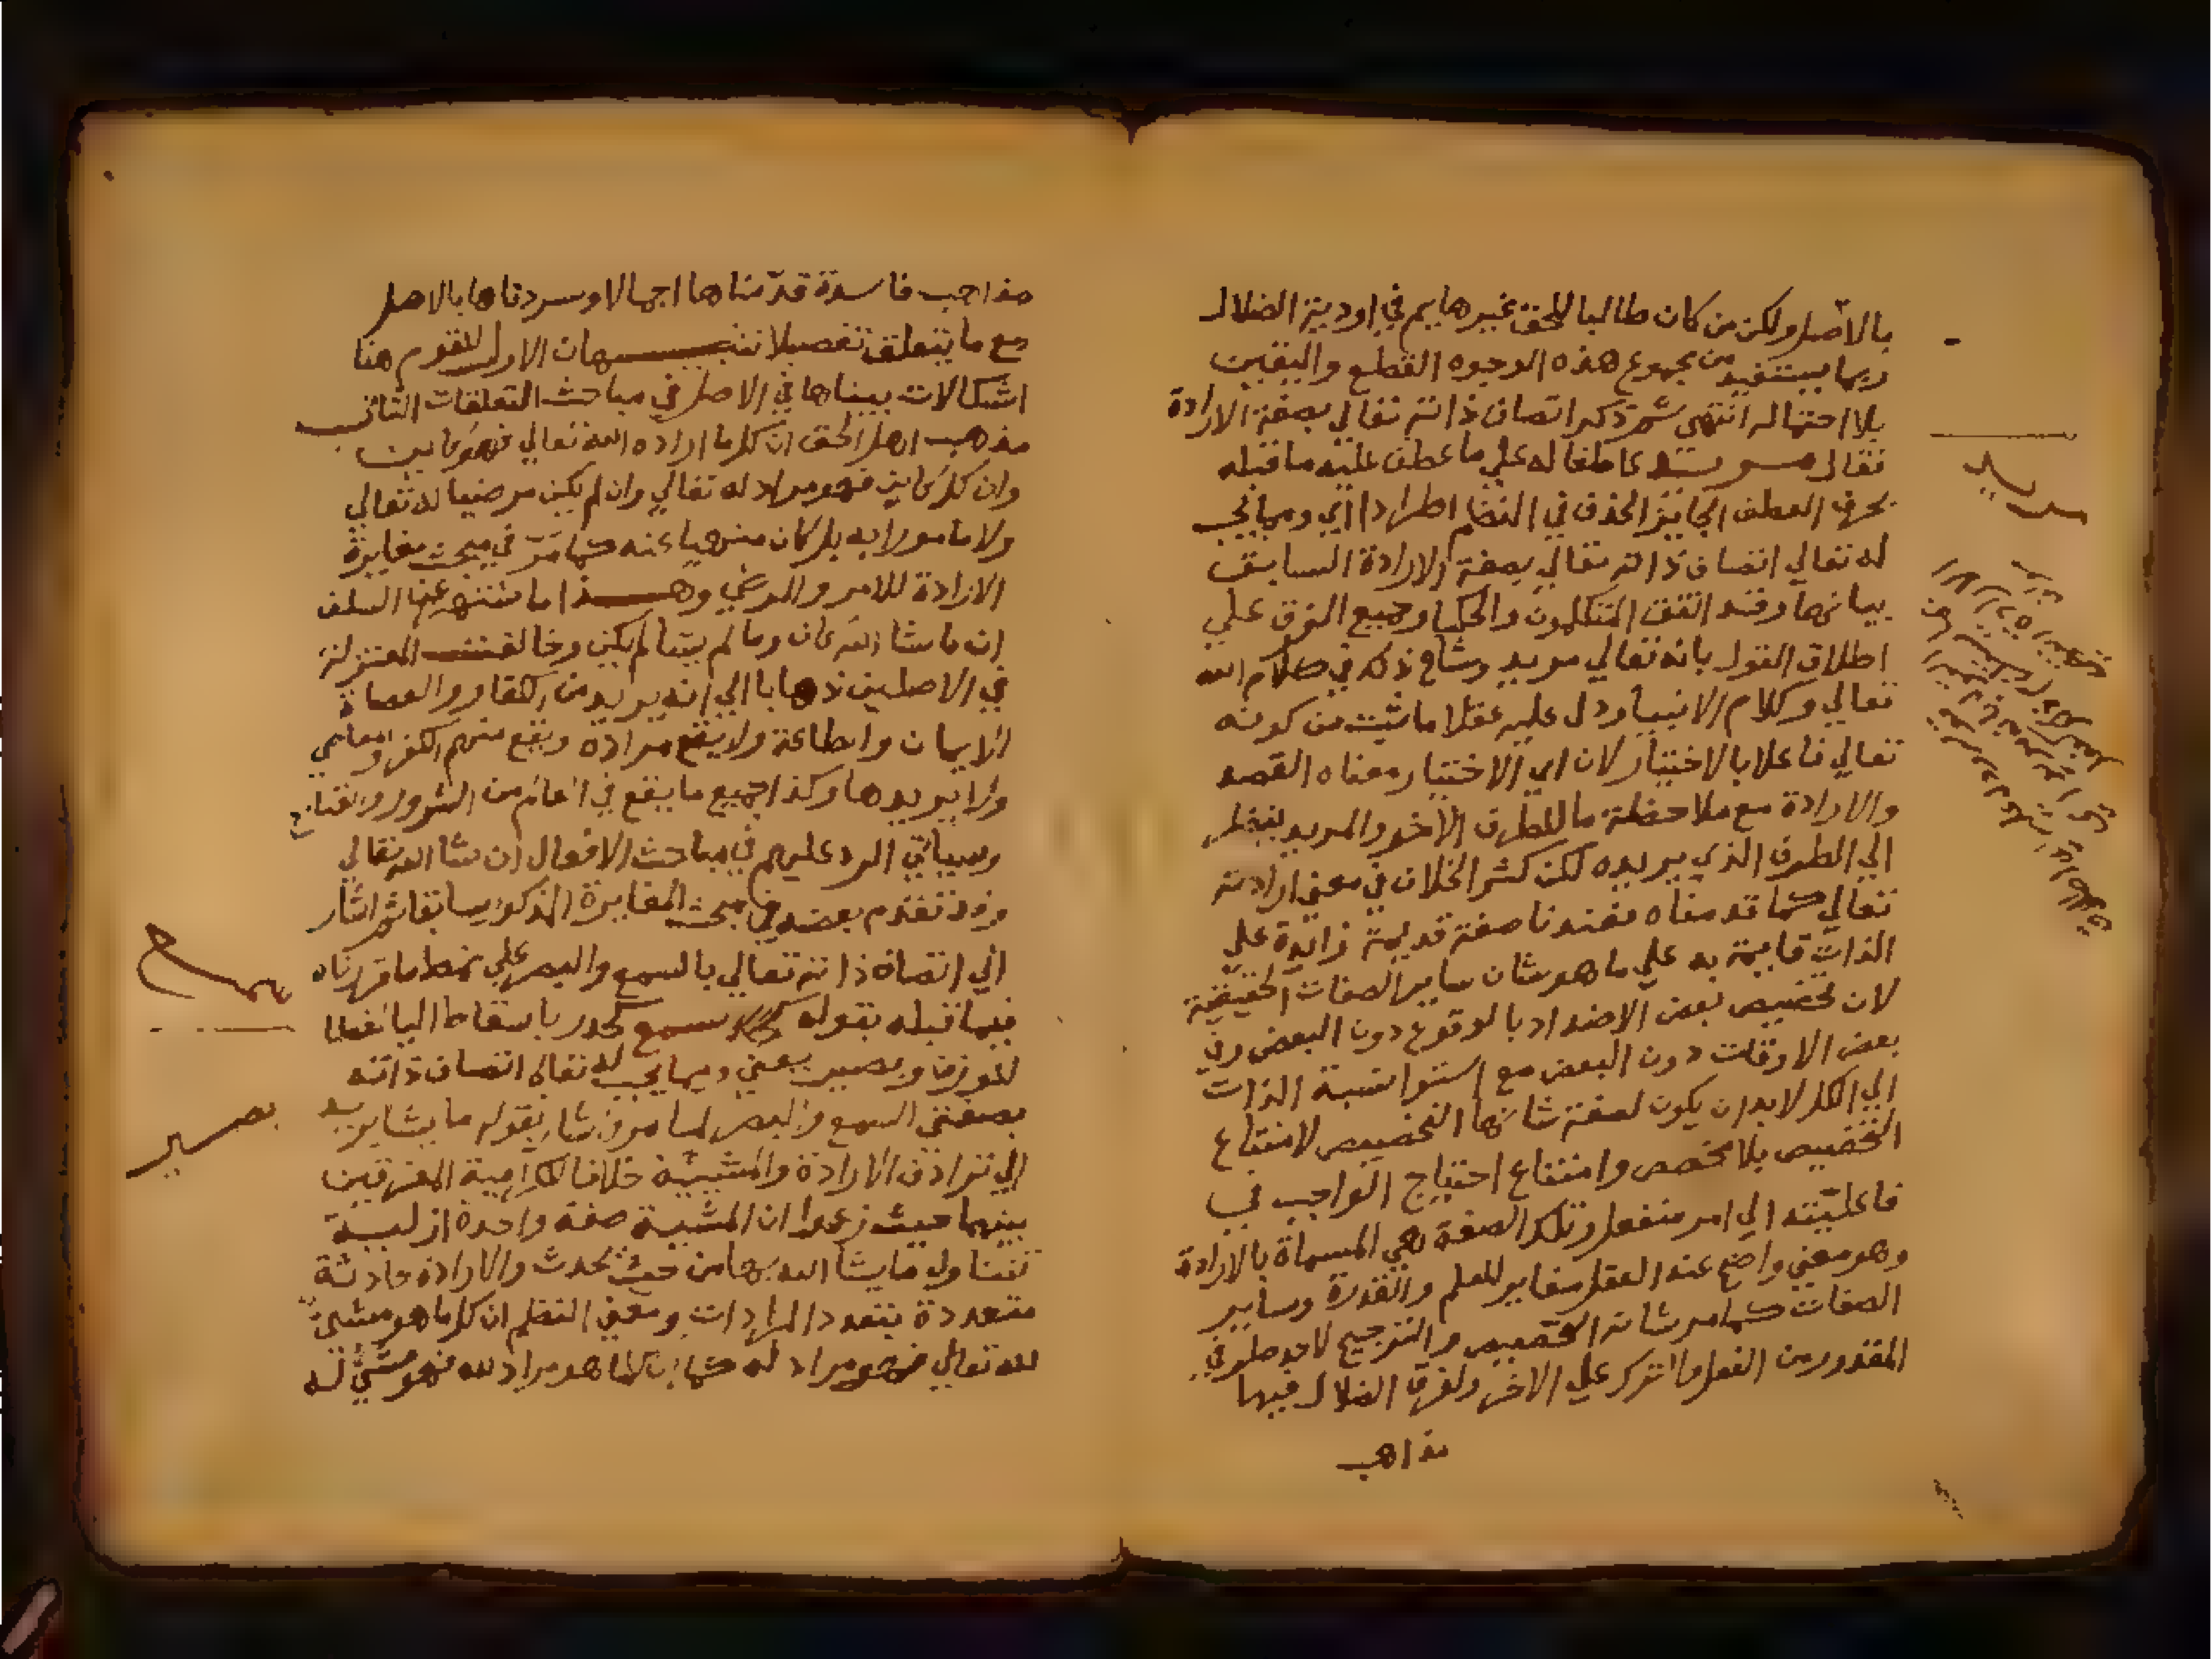 بالاصل ولكن من كان طالبا للحق غير هايم في اودية الضلال
ربما يستفيد من مجموع هذه الوجوه القطع واليقين
بلا احتمال انتهى ثم ذكر اتصاف ذاته تعالي بصفة الارادة
فقال مريد عاطفا له علي ما عطف عليه ما قبله
بحرف العطف الجائز الحذف في النظم اطرادا اي ومما يجب
له تعالي اتصاف ذاته تعالي بصفة الارادة السابق
بيانها وقد اتفق المتكلمون والحكما وجميع الفرق علي
اطلاق القول بانه تعالي مريد وشاع ذلك في كلام الله
تعالي وكلام الانبيا ودل عليه عقلا ما ثبت من كونه
تعالي فاعلا بالاختيار لان اي الاختيار معناه القصد
والارادة مع ملاحظة ما للطرف الاخر والمريد ينظر
الي الطرف الذي يريده لكن كثر الخلاف في معني ارادته
تعالي كما قدمناه فعندنا صفة قديمة زايدة علي
الذات قايمة به علي ما هو شان ساير الصفات الحقيقية
لان تخصيص بعض الاضداد بالوقوع دون البعض وفي
بعض الاوقات دون البعض مع استوا نسبة الذات
الي الكل لابد ان يكون لصفة شانها التخصيص لامتناع
التخصيص بلا مخصص وامتناع احتياج الواجب في
فاعليته الي امر منفصل وتلك الصفة هي المسماة بالارادة
وهو معني واضح عند العقل مغاير للعلم والقدرة وساير
الصفات كما مر شانه التخصيص والترجيح لاحد طرفي
المقدور من الفعل والترك علي الاخر ولفرق الضلال فيها
مذاهب
مريد
مذاهب فاسدة قدمناها اجمالا وسردناها بالاصل
مع ما يتعلق تفصيلا تنبيهات الاول للقوم هنا
اشكالات بيناها في الاصل في مباحث التعلقات الثاني
مذهب اهل الحق ان كل ما اراده الله تعالي فهو كاين
وان كل كاين فهو مراد له تعالي وان لم يكن مرضيا له تعالي
ولا مامورا به بل كان منهيا عنه كما مر في مبحث مغايرة
الارادة للامر والرضي وهذا ما اشتهر عن السلف
ان ما شا الله كان وما لم يشا لم يكن وخالفت المعتزلة
في الاصلين ذهابا الي انه يريد من الكفار والعصاة
الايمان والطاعة ولا يقع مراده ويقع منهم الكفر والمعاصي
ولا يريدها وكذا جميع ما يقع في العالم من الشرور والقبايح
وسياتي الرد عليهم في مباحث الافعال ان شا الله تعالي
وقد تقدم بعضه في مبحث المغايرة المذكور سابقا ثم اشار
الي اتصاف ذاته تعالي بالسمع والبصر علي نمط ما قررناه
فيما قبله بقوله سمع كحدر باسقاط اليا
للوزن وبصير يعني ومما يجب له تعالي اتصاف ذاته
بصفتي السمع والبصر لما مر واشار بقوله ما يشا يريد
الي ترادف الارادة والمشيئة خلافا للكرامية المفرقين
بينهما حيث زعموا ان المشيئة صفة واحدة ازلية
تتناول ما يشا الله بها من حيث يحدث والارادة حادثة
متعددة بتعدد المرادات ومعني النظم ان كل ما هو مشيئ
لله تعالي فهو مراد له كما ان كل ما هو مراد لله فهو مشيئ له
سمع
بصير